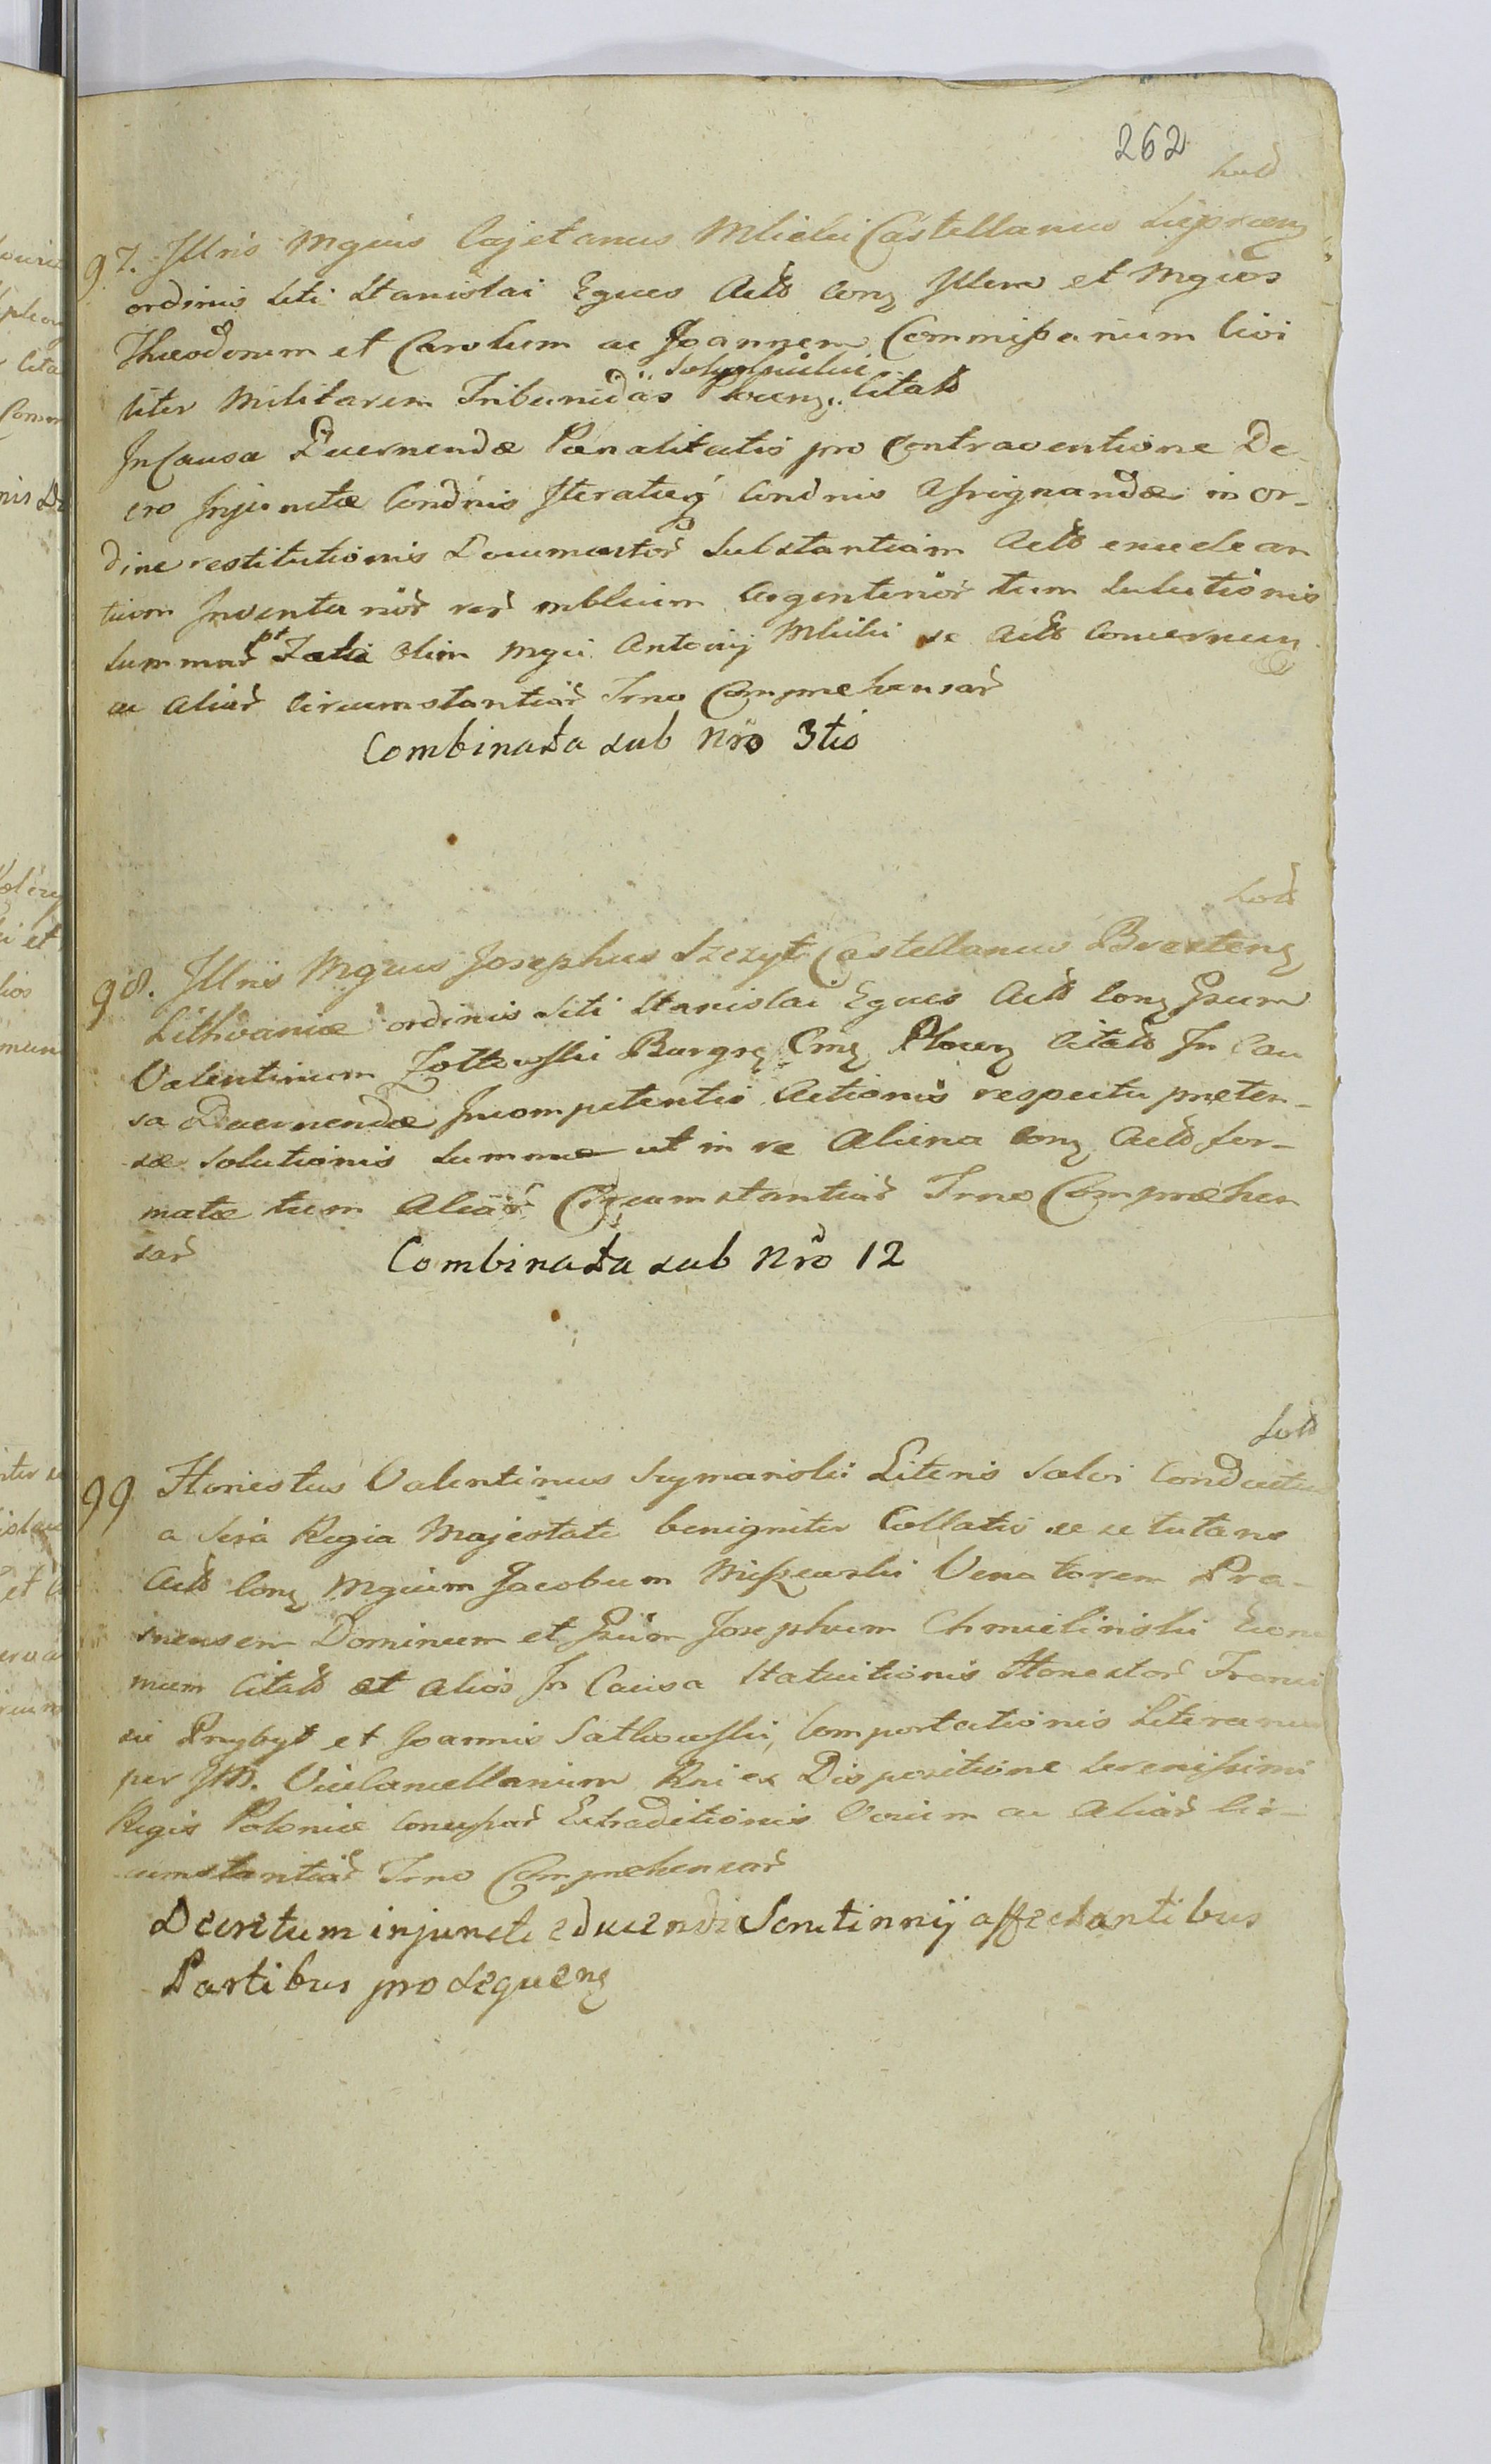 262
97. Illris Mgcus Cajetanus Mlicki Castellanus
ordinis Sti Stanislai Eques Actō conẓ Illem et Mgcos
Theodorum et Carolum ac Joannem Commissarium Civi
liter Militarem Tribunidas Plocenẓ Citatō
In Causa Decernendæ Pœnalitatis pro Contraventione De-
cro Injunctæ Condnis Condnis Assignandæ in or-
dine restitutionis Documentor̄ Substantiam Actō enuclean
tium Inventarior̄ Argenterior̄ tum Solutionis
Summar̄ olim Mgci Antonij Mlicki se Actō Concernen
ac aliar̄ Circumstantiar̄ Trno Comprehensar̄
Combinata sub Nrō 3tio
98. Illris Mgcus Josephus Szczyt Castellanus Brestenẓ
Lithvaniæ ordinis Sti Stanislai Eques Actō conẓ Gsum
Valentinum Żołtowski Burgrẓ Plocenẓ Citatō In Cau
sa Decernendæ Incompetentis Actionis respectu præten-
sæ Solutionis Summæ ut in re Aliena conẓ Actō for-
matæ tum Aliar̄ Circumstantiar̄ Trno Compræhen
sar̄
Combinata sub Nrō 12
99 Honestus Valentinus Szymanski Literis Salvi Conductus
a Sera Regia Majestate benigniter Collatis se se tutans
Actō conẓ Mgcum Jacobum Miszewski Venatorem Pra-
snensem Dominum et Gsum Josephum Chmielinski Econo
mum Citatō et alios In Causa Statuitionis Honestor̄ Franci
sci Przybyt et Joannis Comportationis Literarum
per Vice Cancellarium Rni ex Dispositione Serenissimi
Regis Poloniæ Extraditionis ac aliar̄ Cir-
cumstantiar̄ Trno Comprehensar̄
Decretum injuncti educendi Scrutinnij affectantibus
Partibus pro sequenẓ